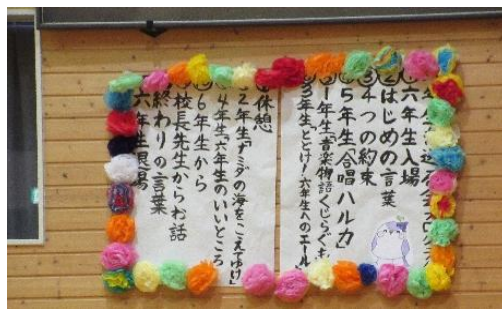 六年生入場
②はじめの言葉
③4つの約束
④5年生「合唱ハルカ」
⑤1年生「音楽物語くじらぐも」
⑥3年生「とどけ!六年生へのエール」
休憩
2年生「ナミダの海をこえてゆけ」
4年生「六年生のいいところ」
6年生から
校長先生からお話
終わりの言葉
六年生退場